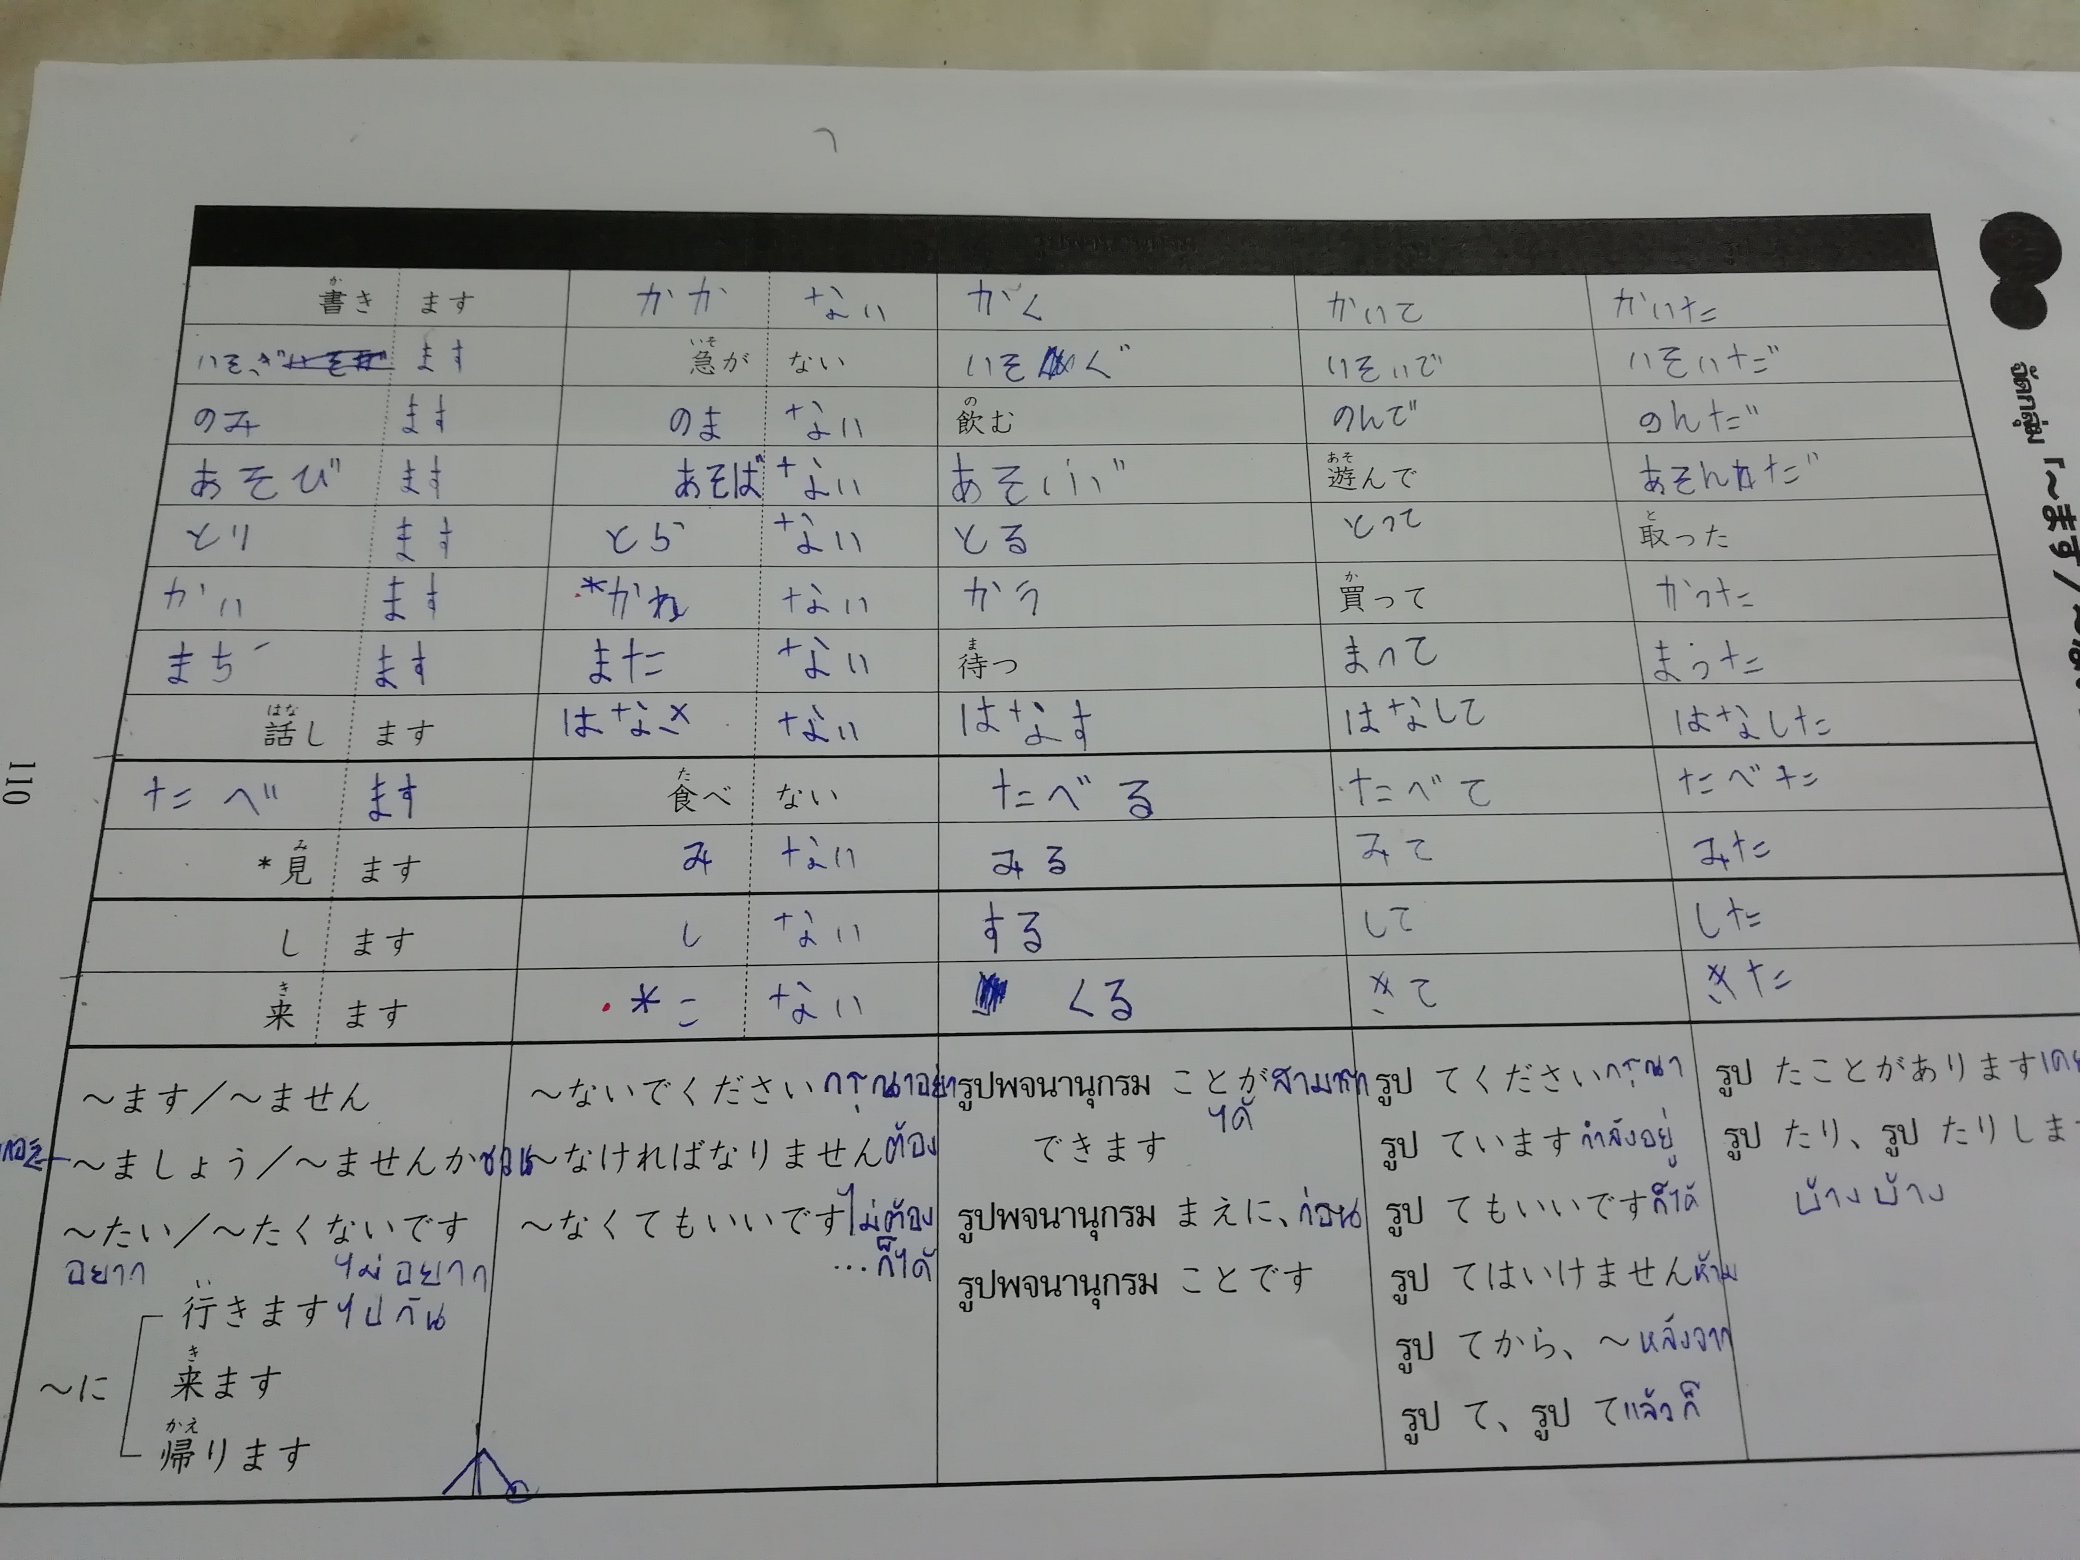 書き ます かか ない かく かいて かいた
いそぎ ます 急が ない いそぐ いそいで いそいだ
のみ ます のま ない 飲む のんで のんだ
あそび ます あそば ない あそぶ 遊んで あそんだ
とり ます とら ない とる とって 取った
かい ます *かわ ない かう 買って かった
まち ます また ない 待つ まって まった
話し ます はなさ ない はなす はなして はなした
たべ ます 食べ ない たべる たべて たべた
*見 ます み ない みる みて みた
し ます し ない する して した
来 ます *こ ない くる きて きた
~ます/~ません
~ましょう/~ませんか ชวน
~たい/~たくないです
อยาก ไม่อยาก
行きます ไปกัน
~に 来ます
帰ります
~ないでください กรุณาอย่า
~なければなりません ต้อง
~なくてもいいです ไม่ต้อง
...ก็ได้
รูปพจนานุกรม ことが สามารถ
ได้
できます
รูปพจนานุกรม まえに、ก่อน
รูปพจนานุกรม ことです
รูป てください กรุณา
รูป ています กำลังอยู่
รูป てもいいです ก็ได้
รูป てはいけません ห้าม
รูป てから、~ หลังจาก
รูป て、รูป て แล้วก็
รูป たことがあります เคย
รูป たり、รูป たりします
บ้าง บ้าง
110
ผังกลุ่ม「~ます/